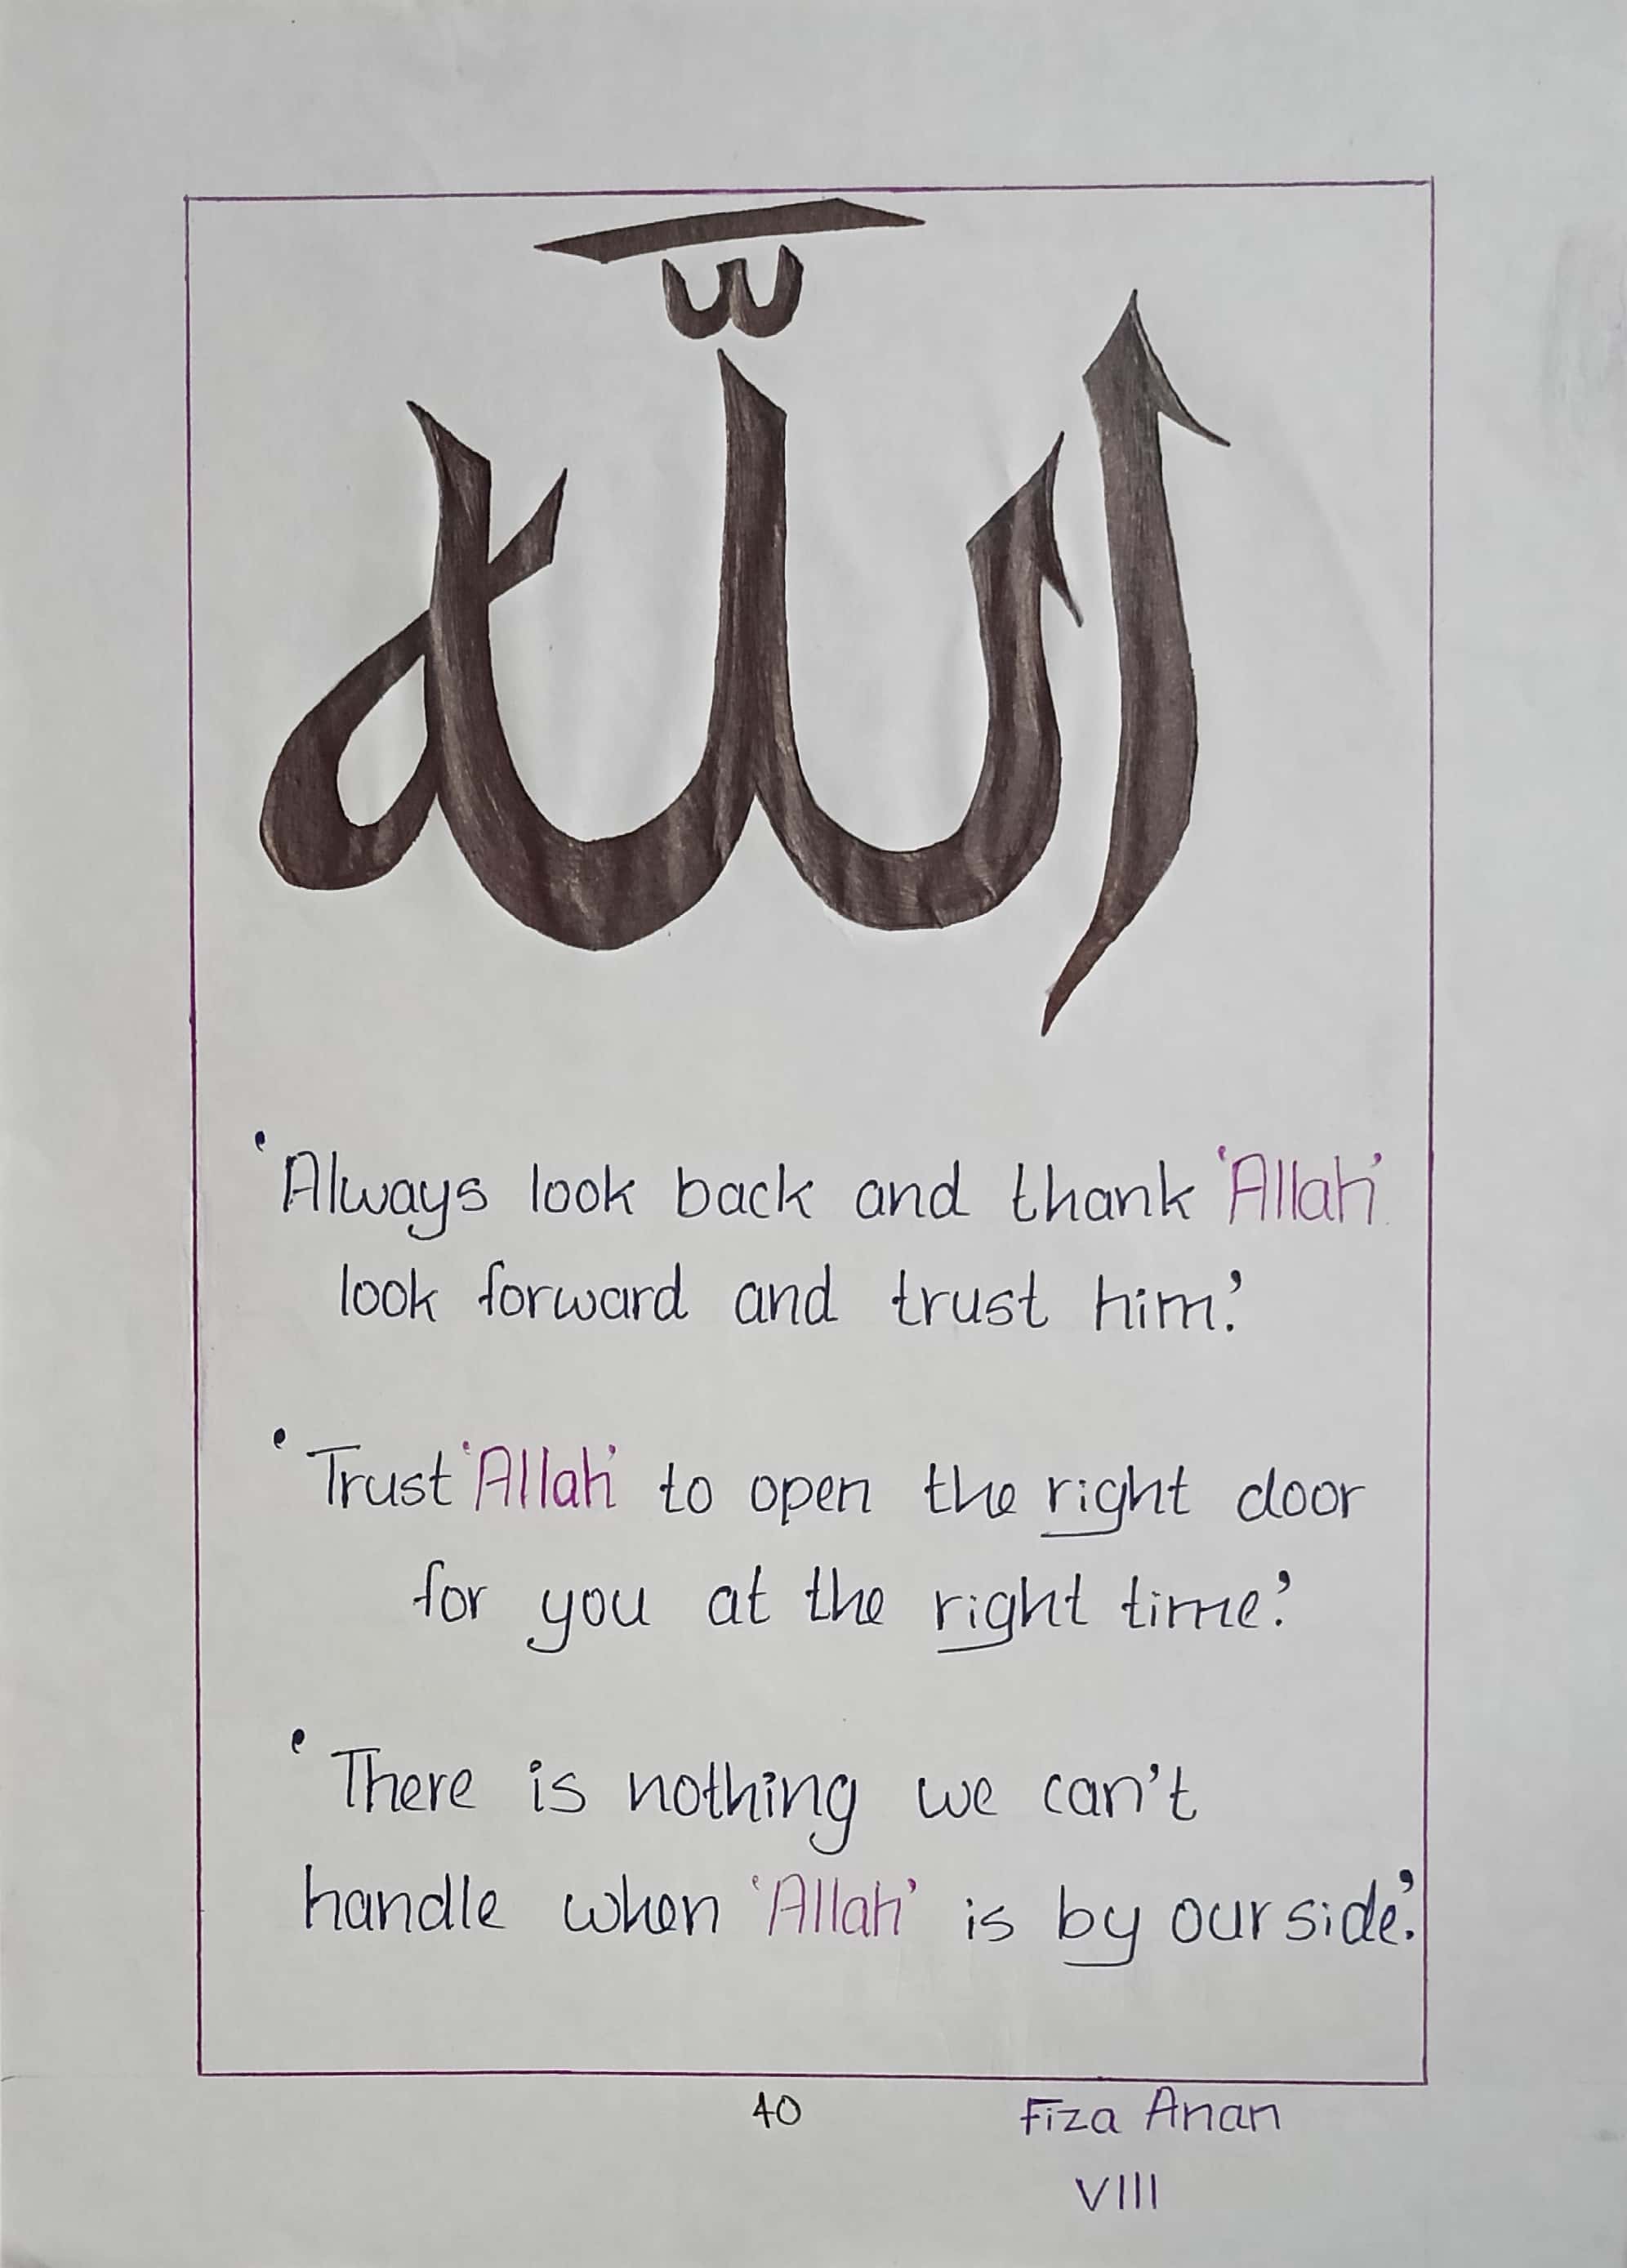 اللّٰه
'Always look back and thank 'Allah'
look forward and trust him.'
'Trust 'Allah' to open the right door
for you at the right time.'
'There is nothing we can't
handle when 'Allah' is by our side.'
40
Fiza Anan
VIII